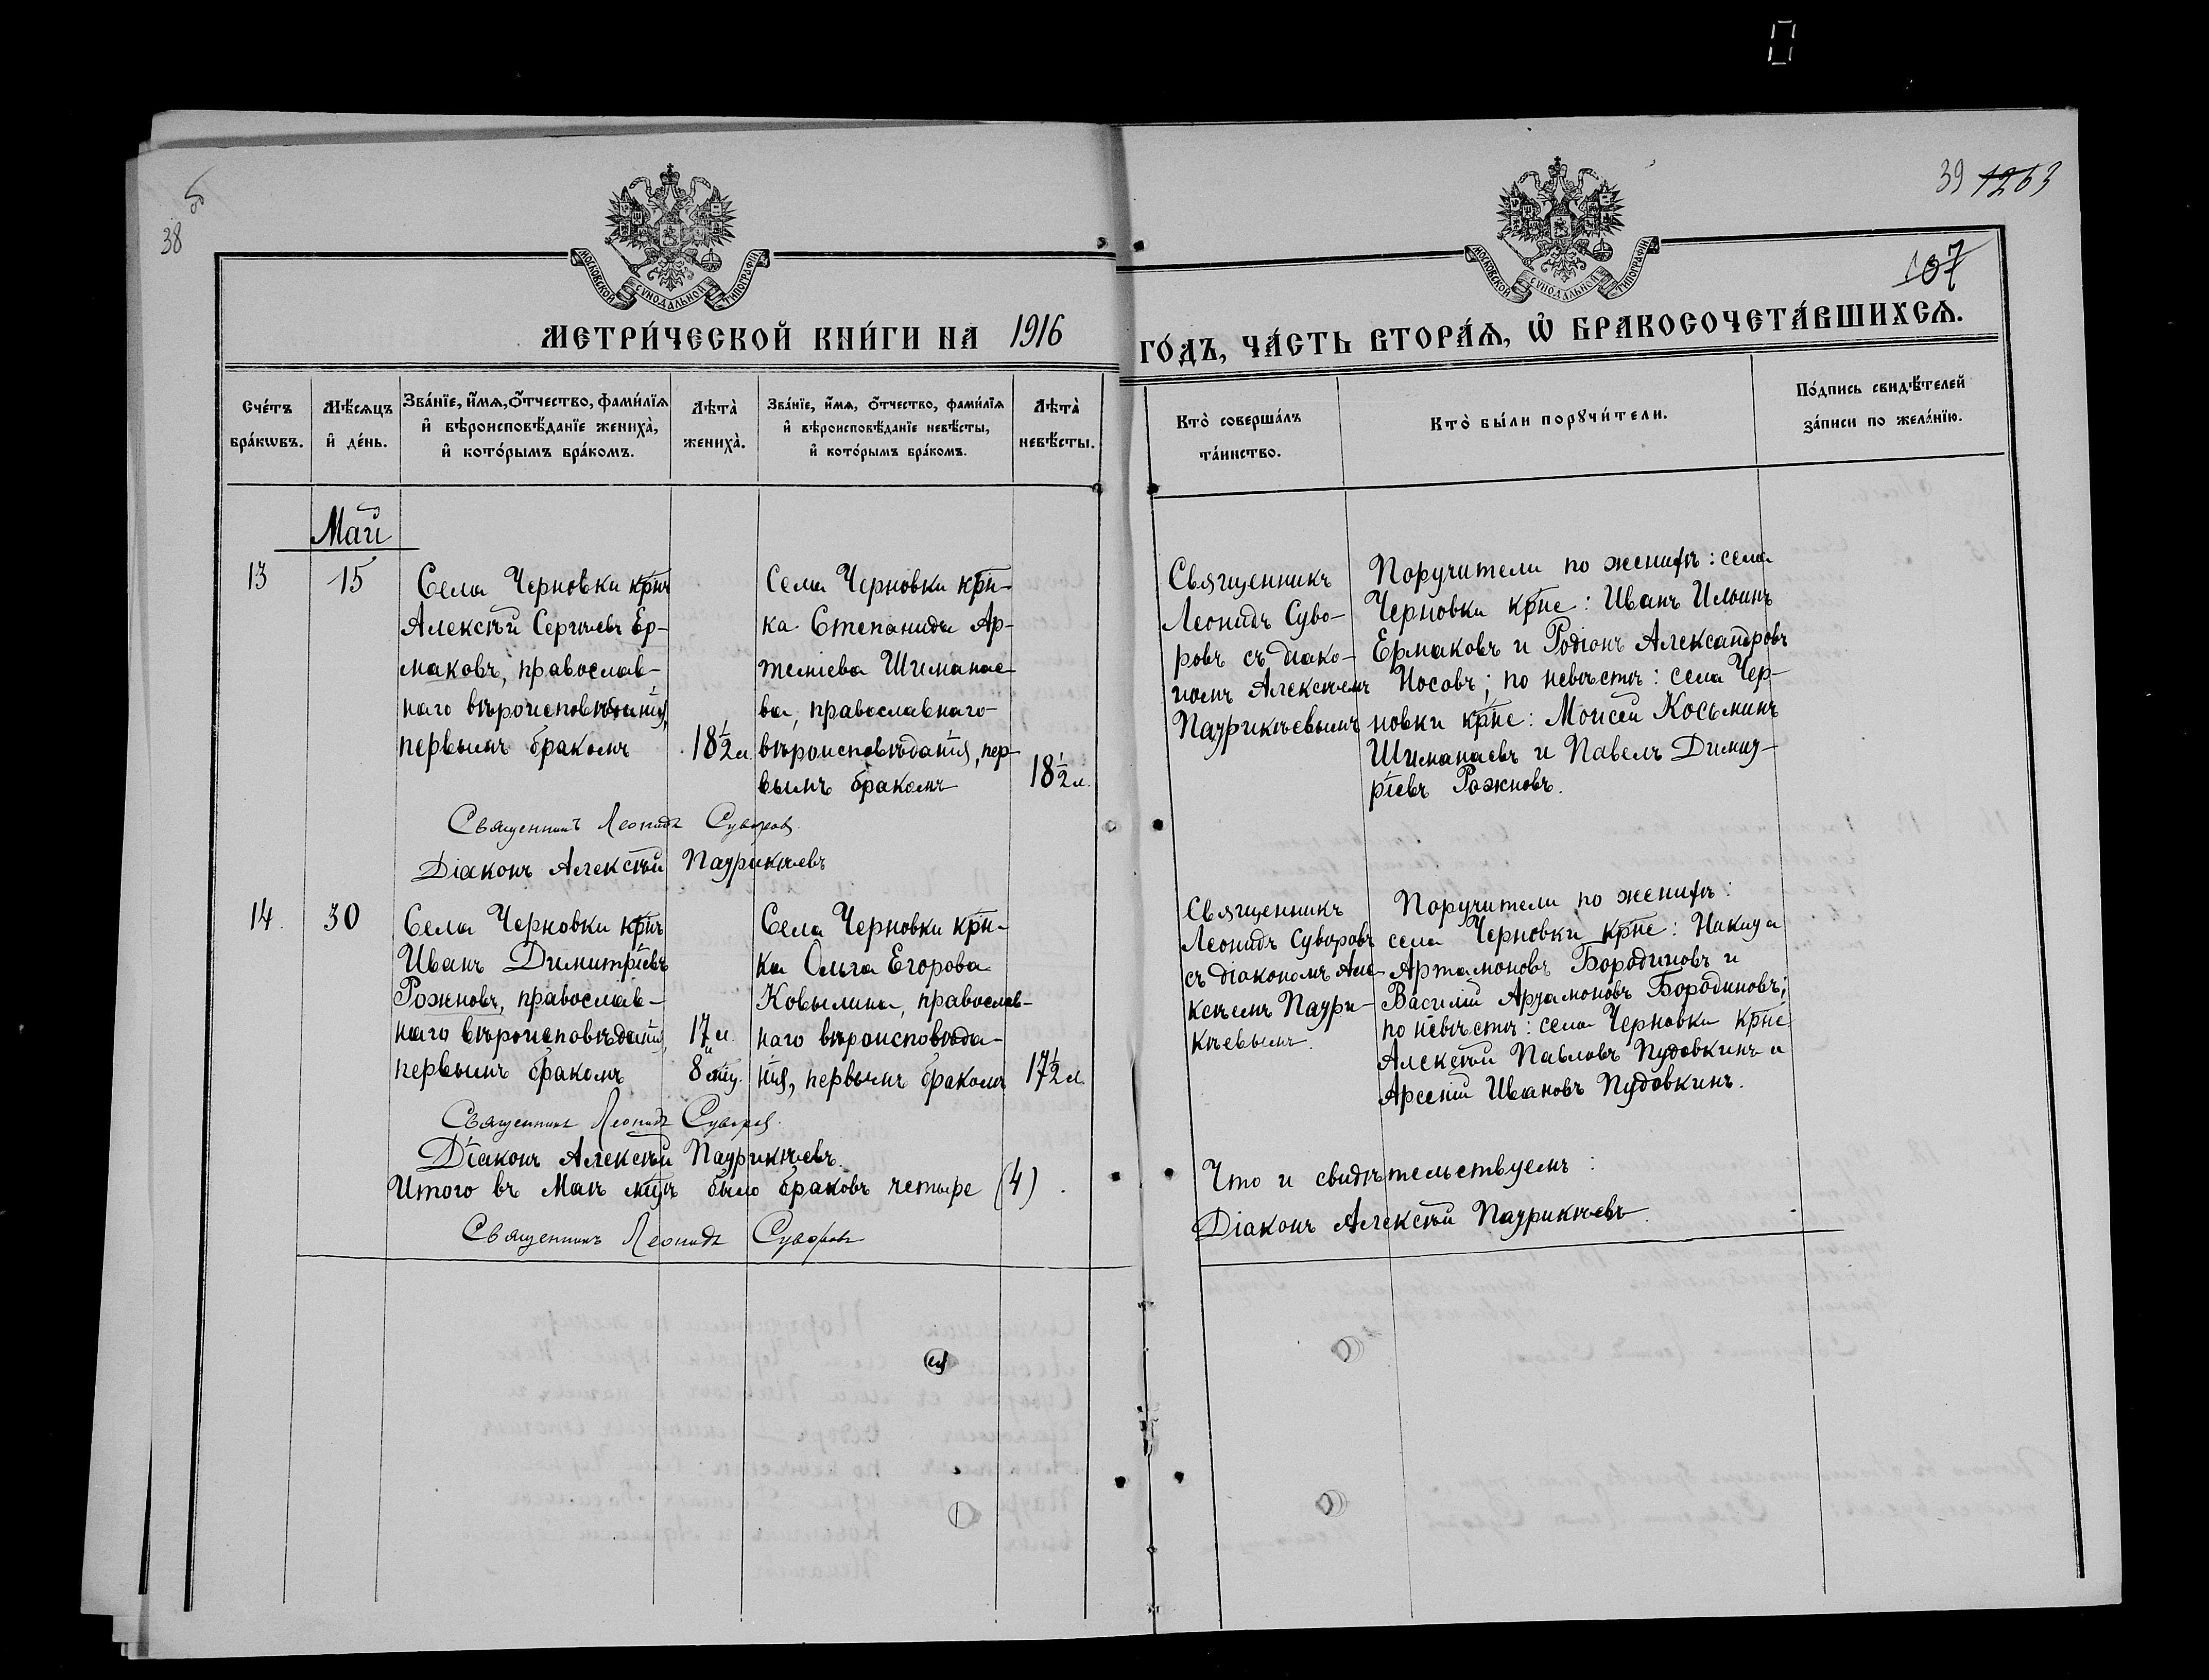 38
39 1263
107
МОСКОВСКОЙ СѴНОДАЛЬНОЙ ТИПОГРАФІИ
МОСКОВСКОЙ СѴНОДАЛЬНОЙ ТИПОГРАФІИ
МЕТРИ́ЧЕСКОЙ КНИ́ГИ НА 1916 ГО́ДЪ, ЧА́СТЬ ВТОРА́Я, Ѡ҆ БРАКОСОЧЕТА́ВШИХСЯ.
Сче́тъ
бра́кωвъ.
Мѣ́сяцъ
и҆ де́нь.
Зва́нїе, и҆́мя, ѻ҆́тчество, фами́лїя
и҆ вѣроисповѣ́данїе жениха̀,
и҆ кото́рымъ бра́комъ.
Лѣта̀
жениха̀.
Зва́нїе, и҆́мя, ѻ҆́тчество, фами́лїя
и҆ вѣроисповѣ́данїе невѣ́сты,
и҆ кото́рымъ бра́комъ.
Лѣта̀
невѣ́сты.
Кто̀ соверша́лъ
та́инство.
Кто̀ бы́ли порꙋчи́тели.
По́дпись свидѣ́телей
за́писи по жела́нїю.
Май
13
15
Села Черновки кр-нъ
Алексѣй Сергѣевъ Ер-
маковъ, православ-
наго вѣроисповѣданія,
первымъ бракомъ
18½ л.
Села Черновки кр-н-
ка Степанида Ар-
темiева Шиманае-
ва, православнаго
вѣроисповѣданія, пер-
вымъ бракомъ
18½ л.
Священникъ
Леонидъ Суво-
ровъ съ діако-
номъ Алексѣемъ
Паурикѣевымъ
Поручители по женихѣ: села
Черновки кр-не: Иванъ Ильинъ
Ермаковъ и Родіонъ Александровъ
Носовъ; по невѣстѣ: села Чер-
новки кр-не: Моисей Косьминъ
Шиманаевъ и Павелъ Димит-
ріевъ Рожновъ.
Священникъ Леонидъ Суворовъ.
Діаконъ Алексѣй Паурикѣевъ
14.
30
Села Черновки кр-нъ
Иванъ Димитріевъ
Рожновъ, православ-
наго вѣроисповѣданія,
первымъ бракомъ
17 л.
и
8 мѣц.
Села Черновки кр-н-
ка Ольга Егорова
Ковылина, православ-
наго вѣроисповѣда-
нія, первымъ бракомъ
17½ л.
Священникъ
Леонидъ Суворовъ
съ діакономъ Але-
ксѣемъ Паури-
кѣевымъ.
Поручители по женихѣ:
села Черновки кр-не: Никита
Артамоновъ Бородиновъ и
Василій Артамоновъ Бородиновъ;
по невѣстѣ: села Черновки кр-не
Алексѣй Павловъ Пудовкинъ и
Арсеній Ивановъ Пудовкинъ.
Священникъ Леонидъ Суворовъ.
Діаконъ Алексѣй Паурикѣевъ.
Итого въ Маѣ мѣцѣ было браковъ четыре (4).
Священникъ Леонидъ Суворовъ
Что и свидѣтельствуемъ:
Діаконъ Алексѣй Паурикѣевъ.